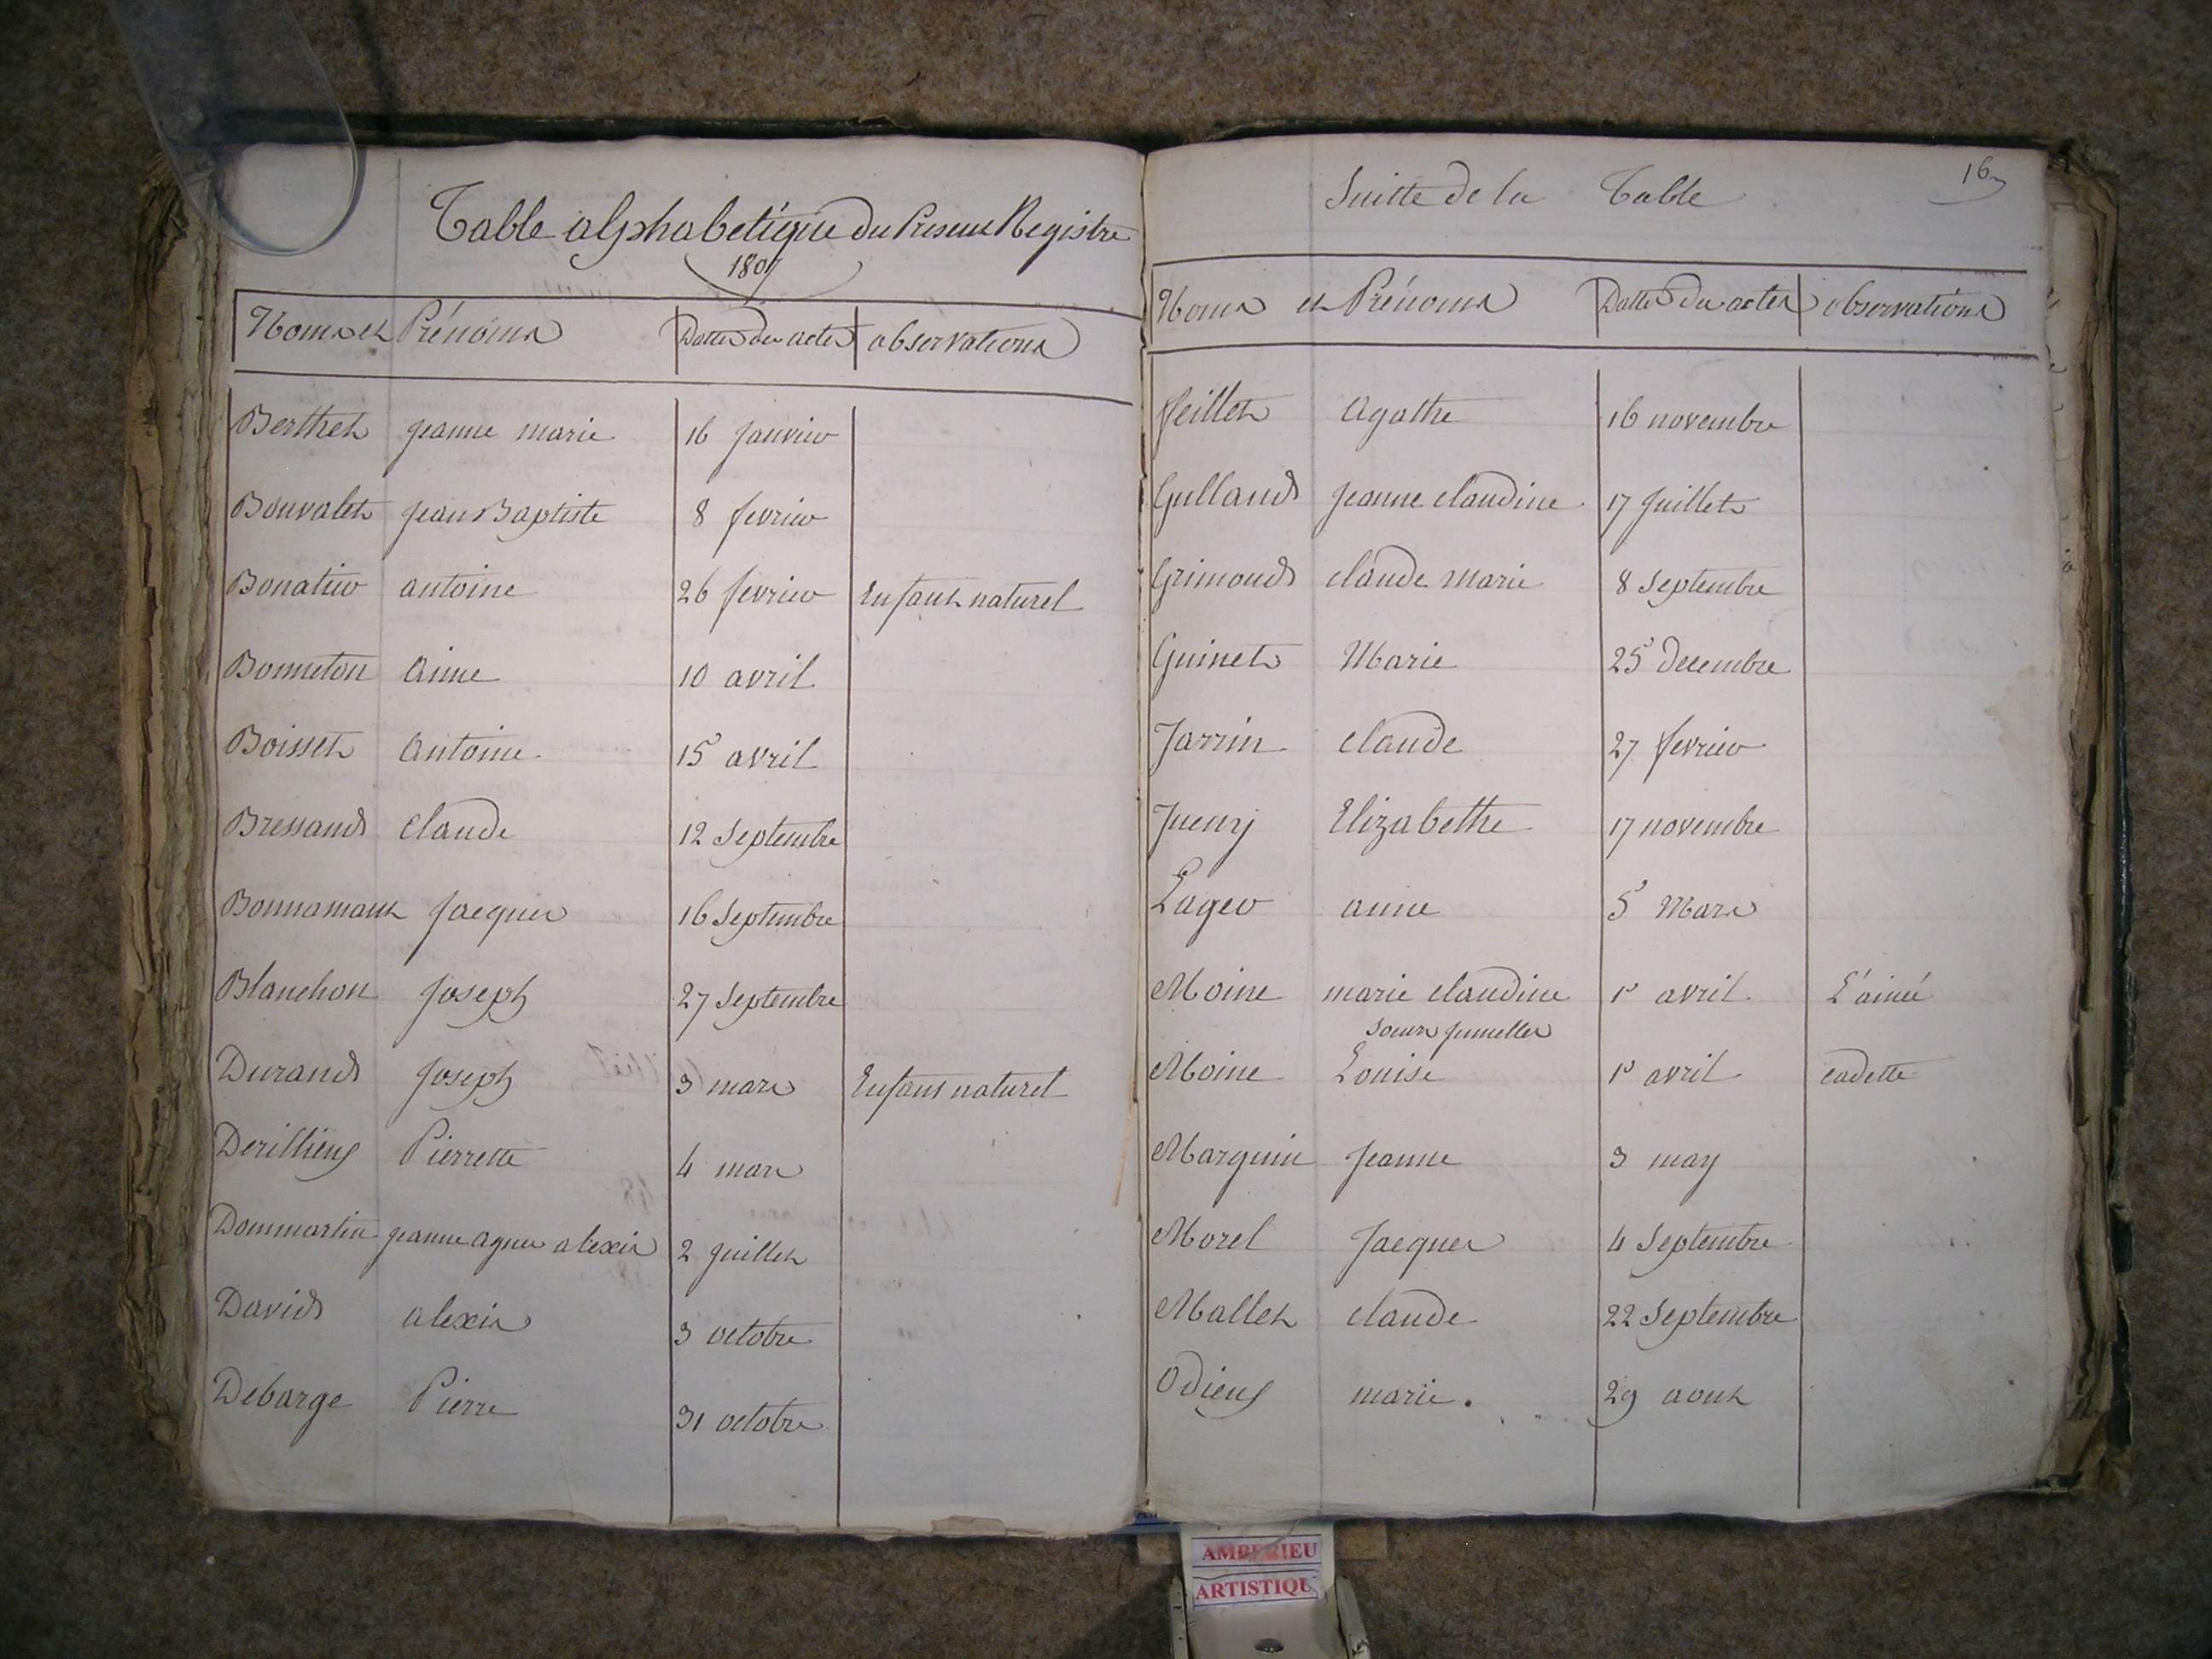 Table alphabetique du Present Registre
1807
Noms et Prénoms Dattes des actes observations
Berthet jeanne marie 16 janvier
Bonvalet jean Baptiste 8 fevrier
Bonatier antoine 26 fevrier Enfant naturel
Bonneton aime 10 avril
Boisset Antoine 15 avril
Bressand Claude 12 Septembre
Bonnamant Jacques 16 Septembre
Blanchon Joseph 27 Septembre
Durand Joseph 3 mars Enfant naturel
Derillieux Pierrette 4 mars
Dommartin jeanne agnes alexis 2 juillet
David alexis 3 octobre
Debarge Pierre 31 octobre
Suitte de la Table
16
Noms et Prénoms Dattes des actes observations
feillet Agathe 16 novembre
Gulland jeanne claudine 17 juillet
Grimond claude marie 8 Septembre
Guinet Marie 25 decembre
Jarrin claude 27 fevrier
Juenj Elizabethe 17 novembre
Lager anne 5 Mars
Moine marie claudine 1r avril L'ainée
soeurs jumelles
Moine Louise 1r avril cadette
Marguin Jeanne 3 may
Morel Jacques 4 Septembre
Mallet claude 22 Septembre
Odieux marie. 29 aout
AMBERIEU
ARTISTIQU